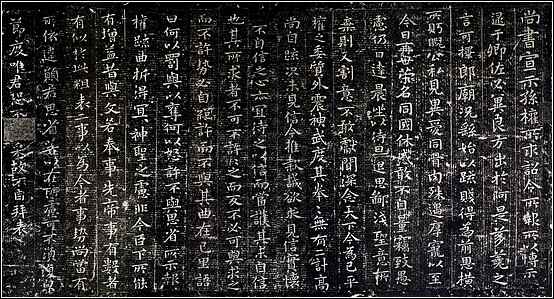 尚書宣示孫權所求詔令所報所以博示
逮于卿佐必冀良方出於阿是芻蕘之
言可擇郎廟況繇始以疏賤得為前恩橫
所盻睨公私見異愛同骨肉殊遇厚寵以至
今日再世榮名同國休慼敢不自量竊致愚
慮仍日達晨坐以待旦退思鄙淺聖意所
棄則又割意不敢獻聞深念天下今為已平
權之委質外震神武度其拳拳無有二計高
尚自疏況未見信今推款誠欲求見信實懷
不自信之心亦宜待之以信而當護其未自信
也其所求者不可不許許之而反不必可與求之
而不許勢必自絕許而不與其曲在己里語
曰何以罰與以奪何以怒許不與思省所示報
權疏曲折得宜宜神聖之慮非今臣下所能
有增益昔與文若奉事先帝事有數者
有似於此粗表二事以為今者事勢尚當有
所依違願君思省若以在所慮可不須復貌
節度唯君恐不采故不自拜表